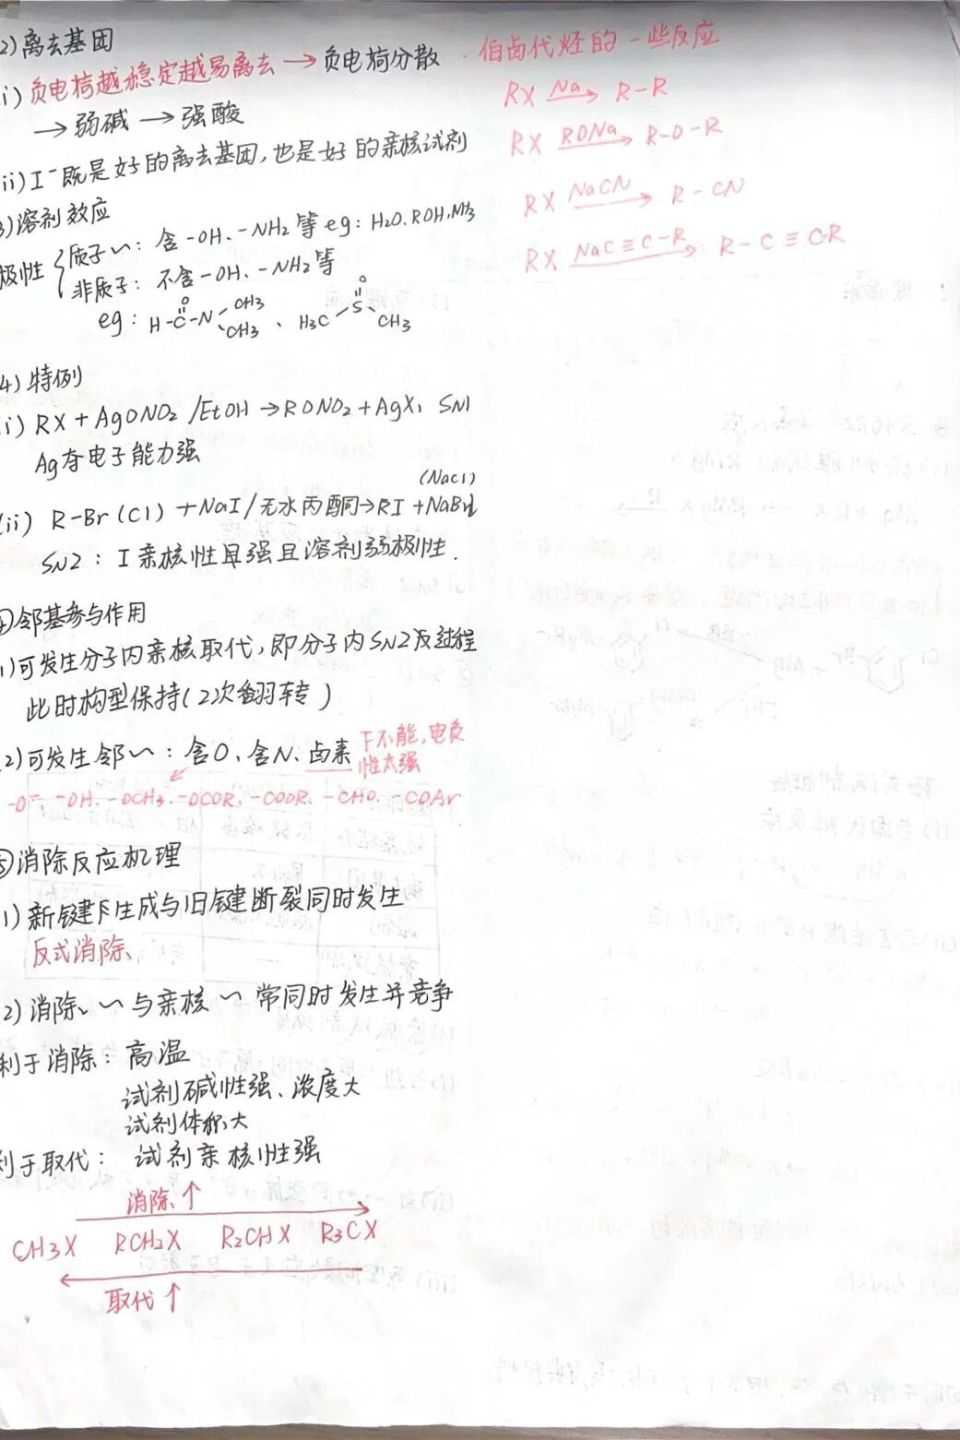 2)离去基团
i)负电荷越稳定越易离去→负电荷分散
→弱碱→强酸
ii)I⁻既是好的离去基团,也是好的亲核试剂
3)溶剂效应
极性{质子〜:含-OH、-NH2等 eg:H2O、ROH、NH3
非质子:不含-OH、-NH2等
eg: H-C(=O)-N(CH3)CH3、H3C-S(=O)-CH3
4)特例
i) RX+AgONO2/EtOH→RONO2+AgX, SN1
Ag夺电子能力强
(NaCl)
(ii) R-Br(Cl)+NaI/无水丙酮→RI+NaBr↓
SN2:I亲核性具强且溶剂弱极性.
④邻基参与作用
1)可发生分子内亲核取代,即分子内SN2反过程
此时构型保持(2次翻转)
2)可发生邻〜:含O、含N、卤素 F不能,电负性太强
-O⁻、-OH、-OCH3、-OCOR、-COOR、-CHO、-COAr
⑤消除反应机理
1)新键生成与旧键断裂同时发生
反式消除、
2)消除〜与亲核〜常同时发生并竞争
利于消除:高温
试剂碱性强、浓度大
试剂体积大
利于取代:试剂亲核性强
消除↑
CH3X RCH2X R2CHX R3CX
取代↑
伯卤代烃的一些反应
RX Na→ R-R
RX RONa→ R-O-R
RX NaCN→ R-CN
RX NaC≡C-R→ R-C≡CR